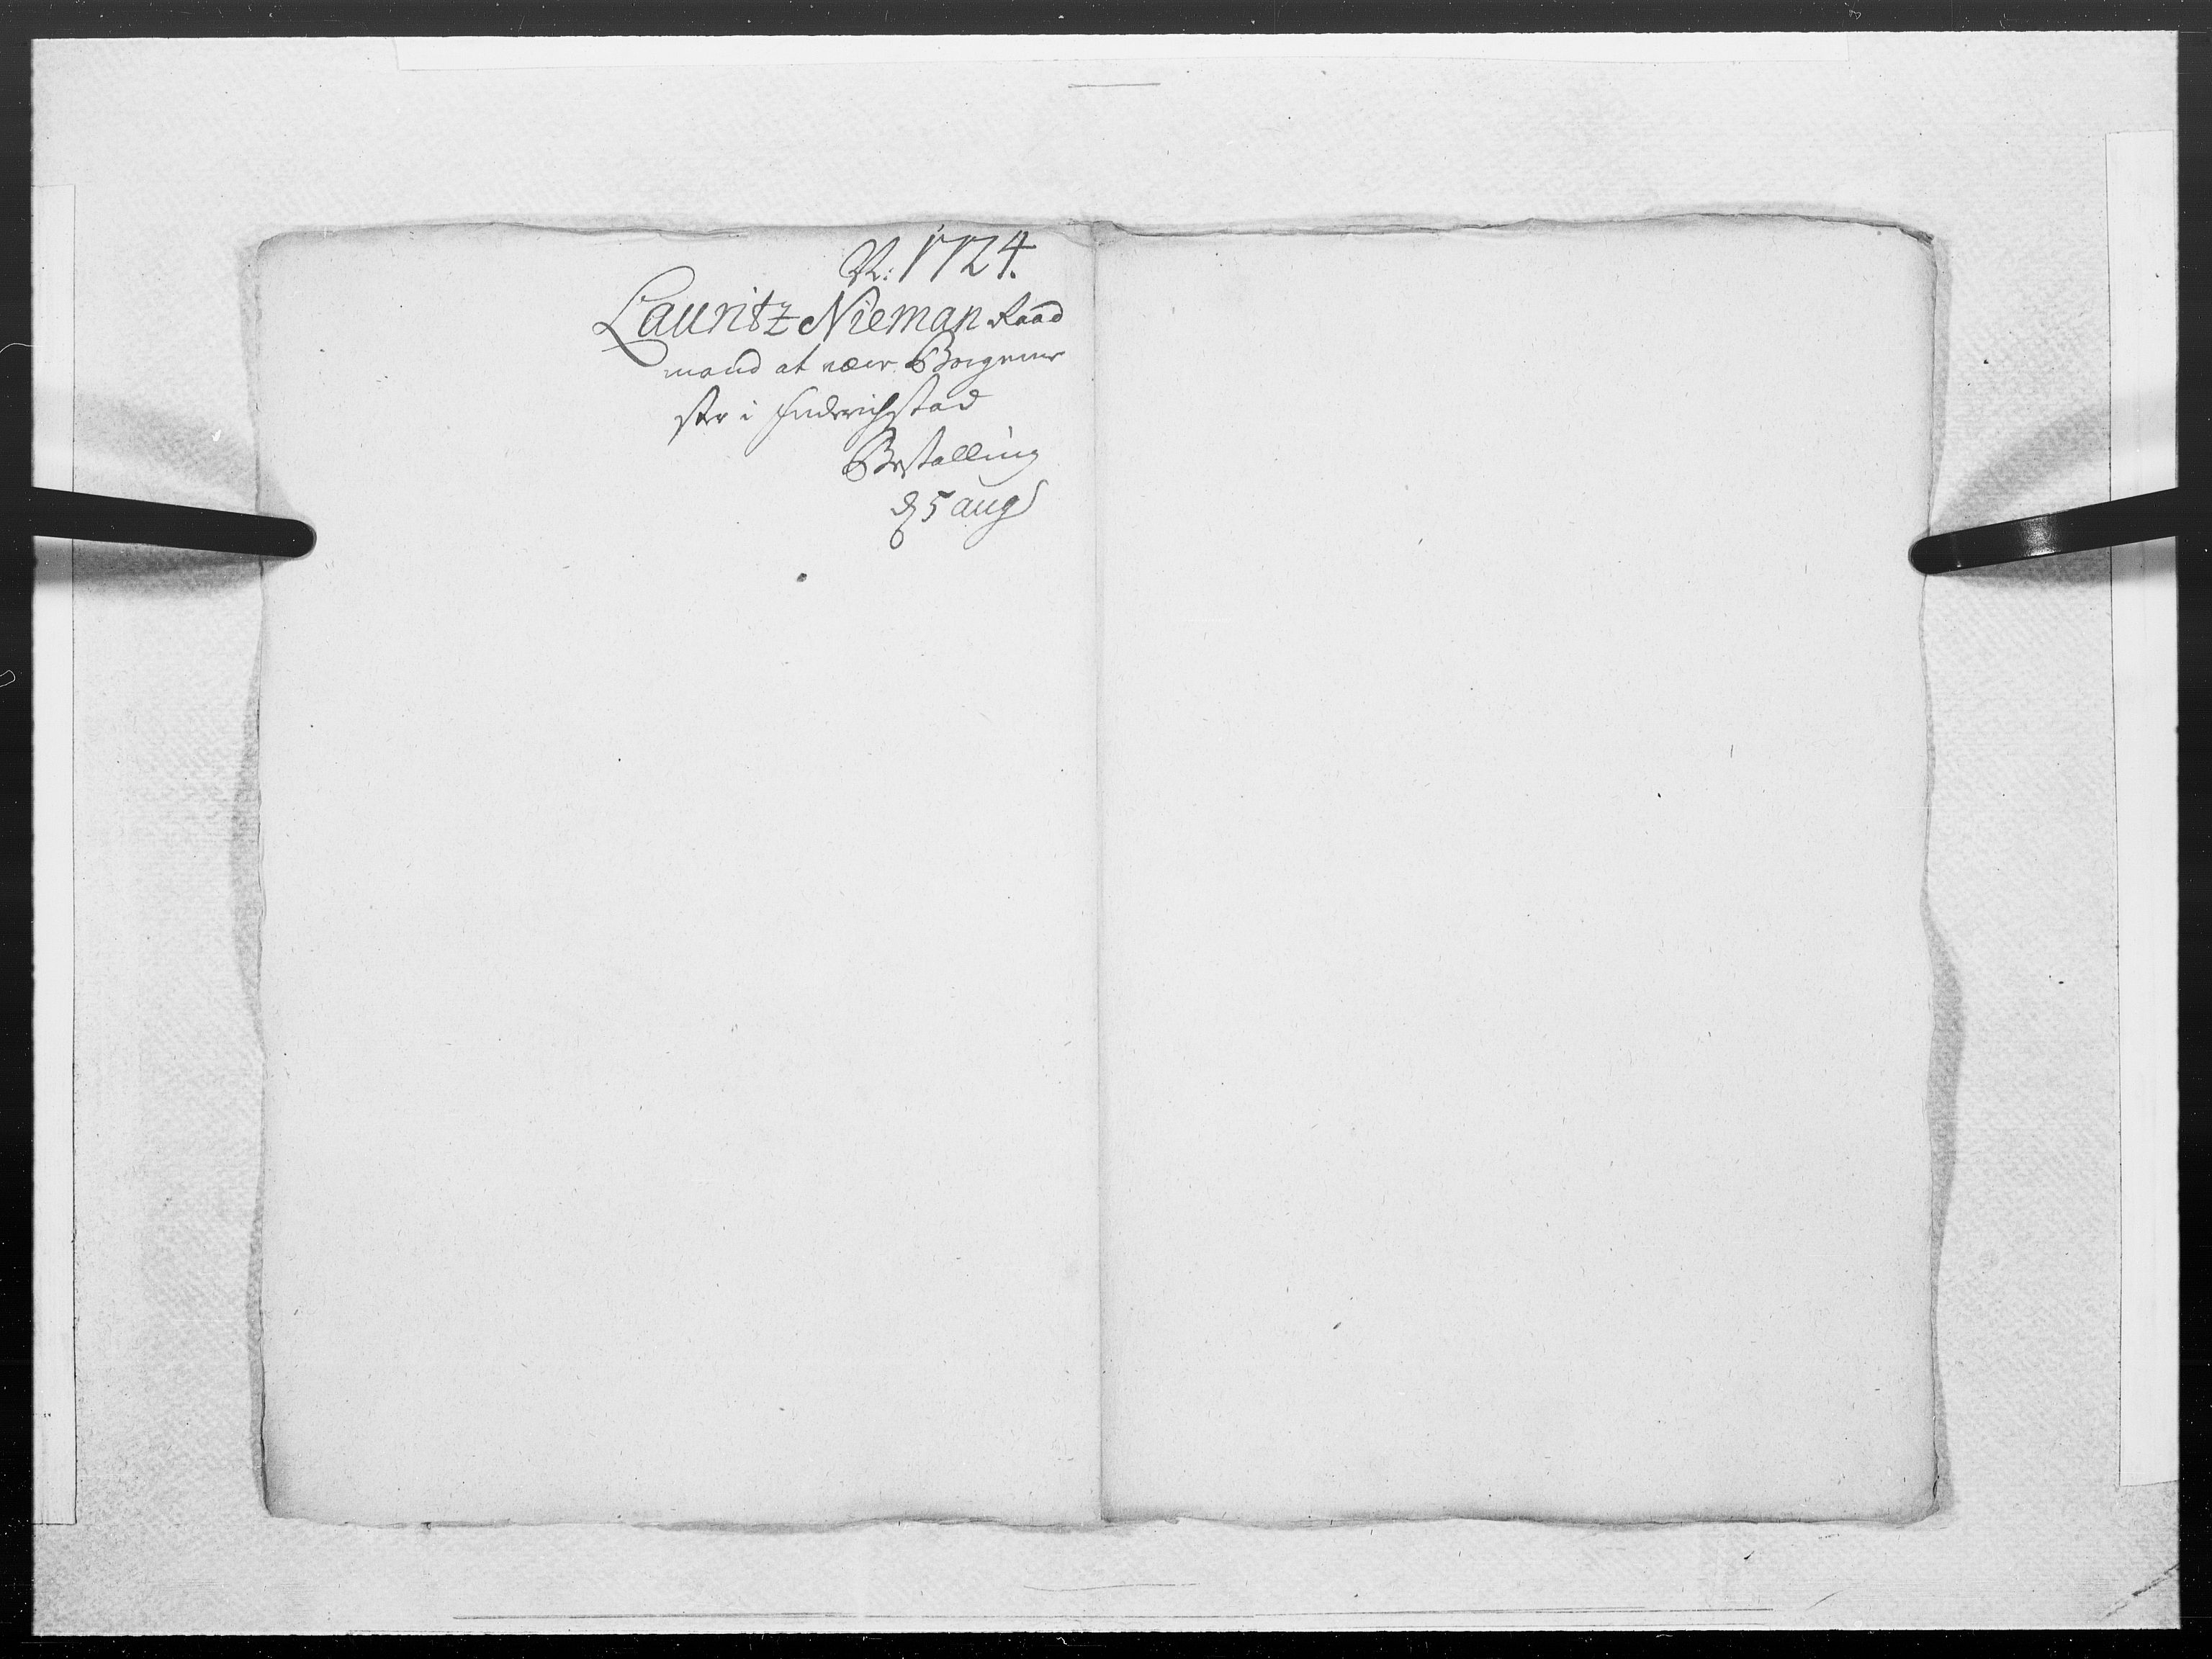 N: 1724.
Lauritz Nieman Raad
mand at være Borgeme
ster i Friderichstad
Bestalling
d 5 aug